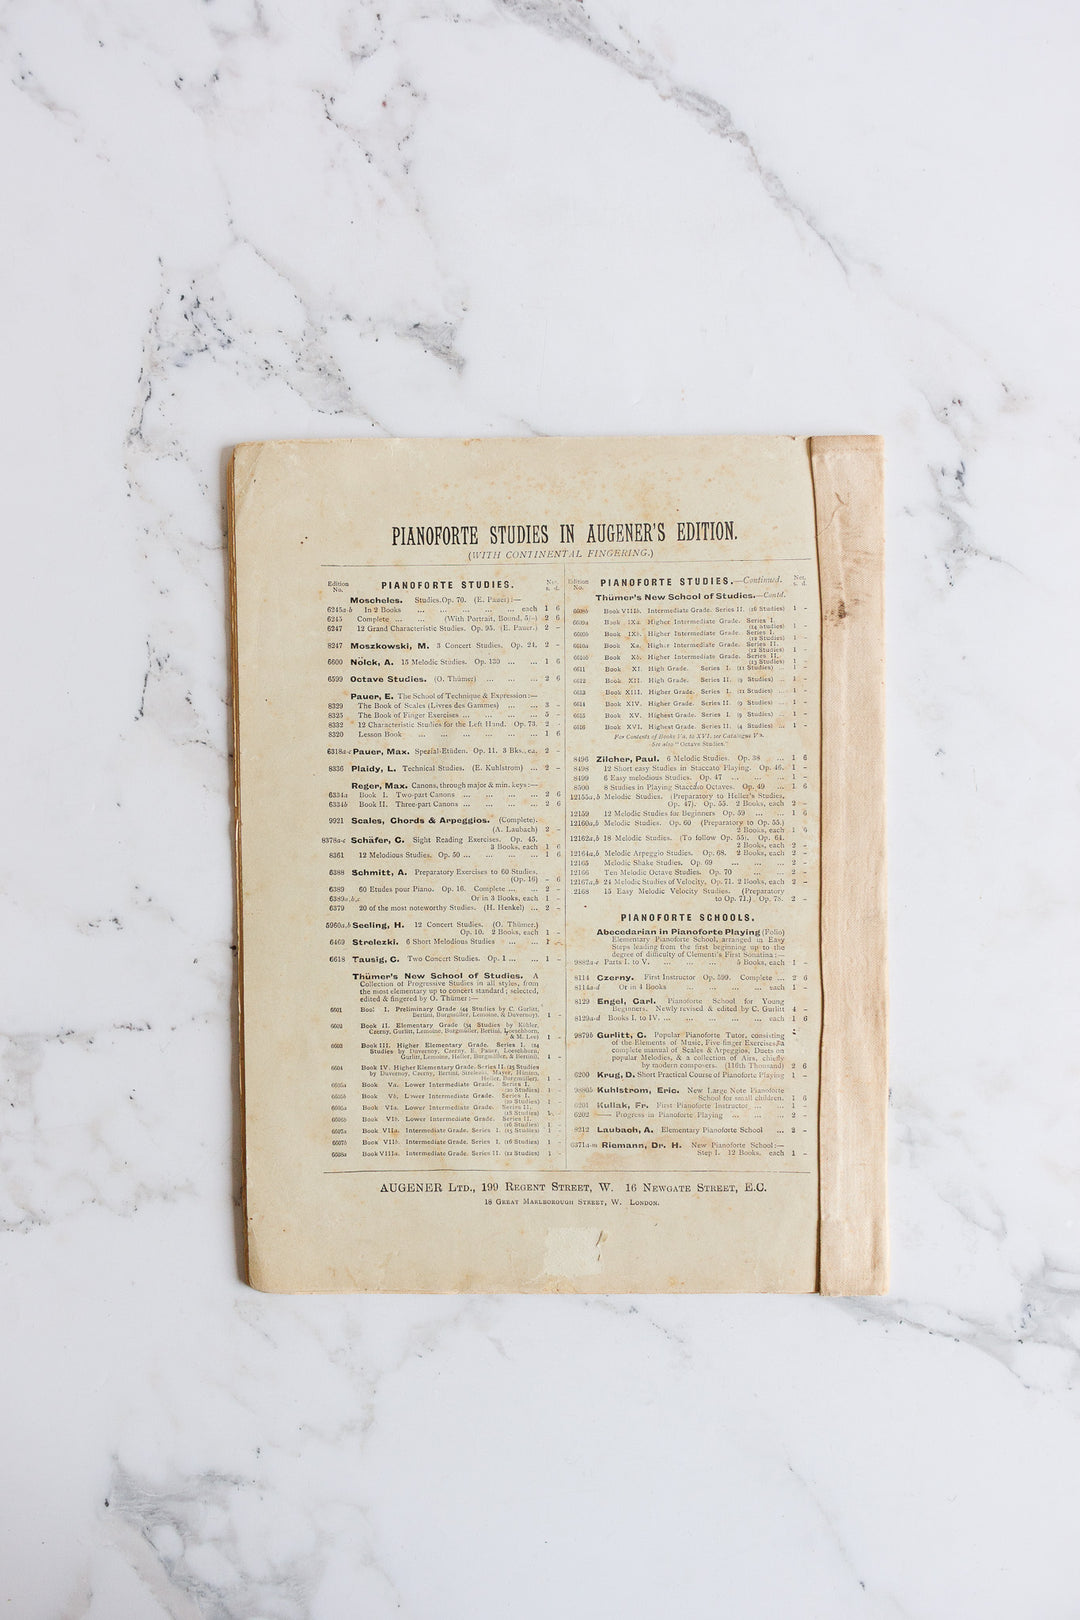 PIANOFORTE STUDIES IN AUGENER'S EDITION.
(WITH CONTINENTAL FINGERING.)
Edition No. PIANOFORTE STUDIES. Net. s. d.
Moscheles. Studies. Op. 70. (E. Pauer):—
6245a-b In 2 Books ... ... ... ... ... each 1 6
6245 Complete ... ... (With Portrait, Bound, 5/-) 2 6
6247 12 Grand Characteristic Studies. Op. 95. (E. Pauer.) 2 -
8247 Moszkowski, M. 3 Concert Studies. Op. 24. 2 -
6600 Nölck, A. 15 Melodic Studies. Op. 130 ... ... 1 6
6599 Octave Studies. (O. Thümer) ... ... ... 2 6
Pauer, E. The School of Technique & Expression:—
8329 The Book of Scales (Livres des Gammes) ... ... 3 -
8325 The Book of Finger Exercises ... ... ... ... 5 -
8332 12 Characteristic Studies for the Left Hand. Op. 73. 2 -
8320 Lesson Book ... ... ... ... ... 1 6
6318a-c Pauer, Max. Spezial-Etüden. Op. 11. 3 Bks., ea. 2 -
8336 Plaidy, L. Technical Studies. (E. Kuhlstrom) ... 2 -
Reger, Max. Canons, through major & min. keys:—
6334a Book I. Two-part Canons ... ... ... ... 2 6
6334b Book II. Three-part Canons ... ... ... ... 2 6
9921 Scales, Chords & Arpeggios. (Complete).
(A. Laubach) 2 -
8378a-c Schäfer, C. Sight Reading Exercises. Op. 45.
3 Books, each 1 6
8361 12 Melodious Studies. Op. 50 ... ... ... ... 1 6
6388 Schmitt, A. Preparatory Exercises to 60 Studies.
(Op. 16) - 6
6389 60 Etudes pour Piano. Op. 16. Complete ... ... 2 -
6389a,b,c Or in 3 Books, each 1 -
6379 20 of the most noteworthy Studies. (H. Henkel) ... 2 -
5960a,b Seeling, H. 12 Concert Studies. (O. Thümer.)
Op. 10. 2 Books, each 1 -
6469 Strelezki. 6 Short Melodious Studies ... ... 1 -
6618 Tausig, C. Two Concert Studies. Op. 1 ... ... 1 -
Thümer's New School of Studies. A
Collection of Progressive Studies in all styles, from
the most elementary up to concert standard; selected,
edited & fingered by O. Thümer:—
6601 Book I. Preliminary Grade (54 Studies by C. Gurlitt,
Bertini, Burgmüller, Lemoine, & Duvernoy). 1 -
6602 Book II. Elementary Grade (34 Studies by Köhler,
Czerny, Gurlitt, Lemoine, Burgmüller, Bertini, Loeschhorn,
& M. Lee) 1 -
6603 Book III. Higher Elementary Grade. Series I. (24
Studies by Duvernoy, Czerny, E. Pauer, Loeschhorn,
Gurlitt, Lemoine, Heller, Burgmüller, & Bertini). 1 -
6604 Book IV. Higher Elementary Grade. Series II. (25 Studies
by Duvernoy, Czerny, Bertini, Strelezki, Mayer,
Heller, Burgmüller). 1 -
6605a Book Va. Lower Intermediate Grade. Series I.
(20 Studies) 1 -
6605b Book Vb. Lower Intermediate Grade. Series I.
(20 Studies) 1 -
6606a Book VIa. Lower Intermediate Grade. Series II.
(18 Studies) 1 -
6606b Book VIb. Lower Intermediate Grade. Series II.
(16 Studies) 1 -
6607a Book VIIa. Intermediate Grade. Series I. (15 Studies) 1 -
6607b Book VIIb. Intermediate Grade. Series I. (16 Studies) 1 -
6608a Book VIIIa. Intermediate Grade. Series II. (12 Studies) 1 -
Edition No. PIANOFORTE STUDIES.—Continued. Net. s. d.
Thümer's New School of Studies.—Contd.
6608b Book VIIIb. Intermediate Grade. Series II. (16 Studies) 1 -
6609a Book IXa. Higher Intermediate Grade. Series I.
(14 Studies) 1 -
6609b Book IXb. Higher Intermediate Grade. Series I.
(12 Studies) 1 -
6610a Book Xa. Higher Intermediate Grade. Series II.
(12 Studies) 1 -
6610b Book Xb. Higher Intermediate Grade. Series II.
(13 Studies) 1 -
6611 Book XI. High Grade. Series I. (11 Studies) ... 1 -
6612 Book XII. High Grade. Series II. (9 Studies) ... 1 -
6613 Book XIII. Higher Grade. Series I. (11 Studies) ... 1 -
6614 Book XIV. Higher Grade. Series II. (9 Studies) ... 1 -
6615 Book XV. Highest Grade. Series I. (9 Studies) ... 1 -
6616 Book XVI. Highest Grade. Series II. (4 Studies) ... 1 -
For Contents of Books Va. to XVI. see Catalogue Va.
See also "Octave Studies."
8496 Zilcher, Paul. 6 Melodic Studies. Op. 38 ... 1 6
8498 12 Short easy Studies in Staccato Playing. Op. 46. 1 -
8499 6 Easy melodious Studies. Op. 47 ... ... ... 1 -
8500 8 Studies in Playing Staccato Octaves. Op. 49 ... 1 6
12155a,b Melodic Studies. (Preparatory to Heller's Studies,
Op. 47). Op. 55. 2 Books, each 2 -
12159 12 Melodic Studies for Beginners Op. 59 ... ... 1 6
12160a,b Melodic Studies. Op. 60 (Preparatory to Op. 55.)
2 Books, each 1 6
12162a,b 18 Melodic Studies. (To follow Op. 55). Op. 64.
2 Books, each 2 -
12164a,b Melodic Arpeggio Studies. Op. 68. 2 Books, each 2 -
12165 Melodic Shake Studies. Op. 69 ... ... ... 2 -
12166 Ten Melodic Octave Studies. Op. 70 ... ... 2 -
12167a,b 24 Melodic Studies of Velocity, Op. 71. 2 Books, each 2 -
2168 15 Easy Melodic Velocity Studies. (Preparatory
to Op. 71.) Op. 78. 2 -
PIANOFORTE SCHOOLS.
Abecedarian in Pianoforte Playing (Folio)
Elementary Pianoforte School, arranged in Easy
Steps leading from the first beginning up to the
degree of difficulty of Clementi's First Sonatina:—
9882a-e Parts I. to V. ... ... ... ... 5 Books, each 1 -
8114 Czerny. First Instructor Op. 599. Complete ... 2 6
8114a-d Or in 4 Books ... ... ... ... each 1 -
8129 Engel, Carl. Pianoforte School for Young
Beginners. Newly revised & edited by C. Gurlitt 4 -
8129a-d Books I. to IV. ... ... ... ... ... each 1 6
9879b Gurlitt, C. Popular Pianoforte Tutor, consisting
of the Elements of Music, Five finger Exercises, a
complete manual of Scales & Arpeggios, Duets on
popular Melodies, & a collection of Airs, chiefly
by modern composers. (116th Thousand) 2 6
6200 Krug, D. Short Practical Course of Pianoforte Playing 1 -
9880b Kuhlstrom, Eric. New Large Note Pianoforte
School for small children. 1 6
6201 Kullak, Fr. First Pianoforte Instructor ... ... 1 -
6202 —— Progress in Pianoforte Playing ... ... ... 2 -
8212 Laubach, A. Elementary Pianoforte School ... 2 -
6371a-m Riemann, Dr. H. New Pianoforte School:—
Step I. 12 Books, each 1 -
AUGENER LTD., 199 REGENT STREET, W. 16 NEWGATE STREET, E.C.
18 GREAT MARLBOROUGH STREET, W. LONDON.